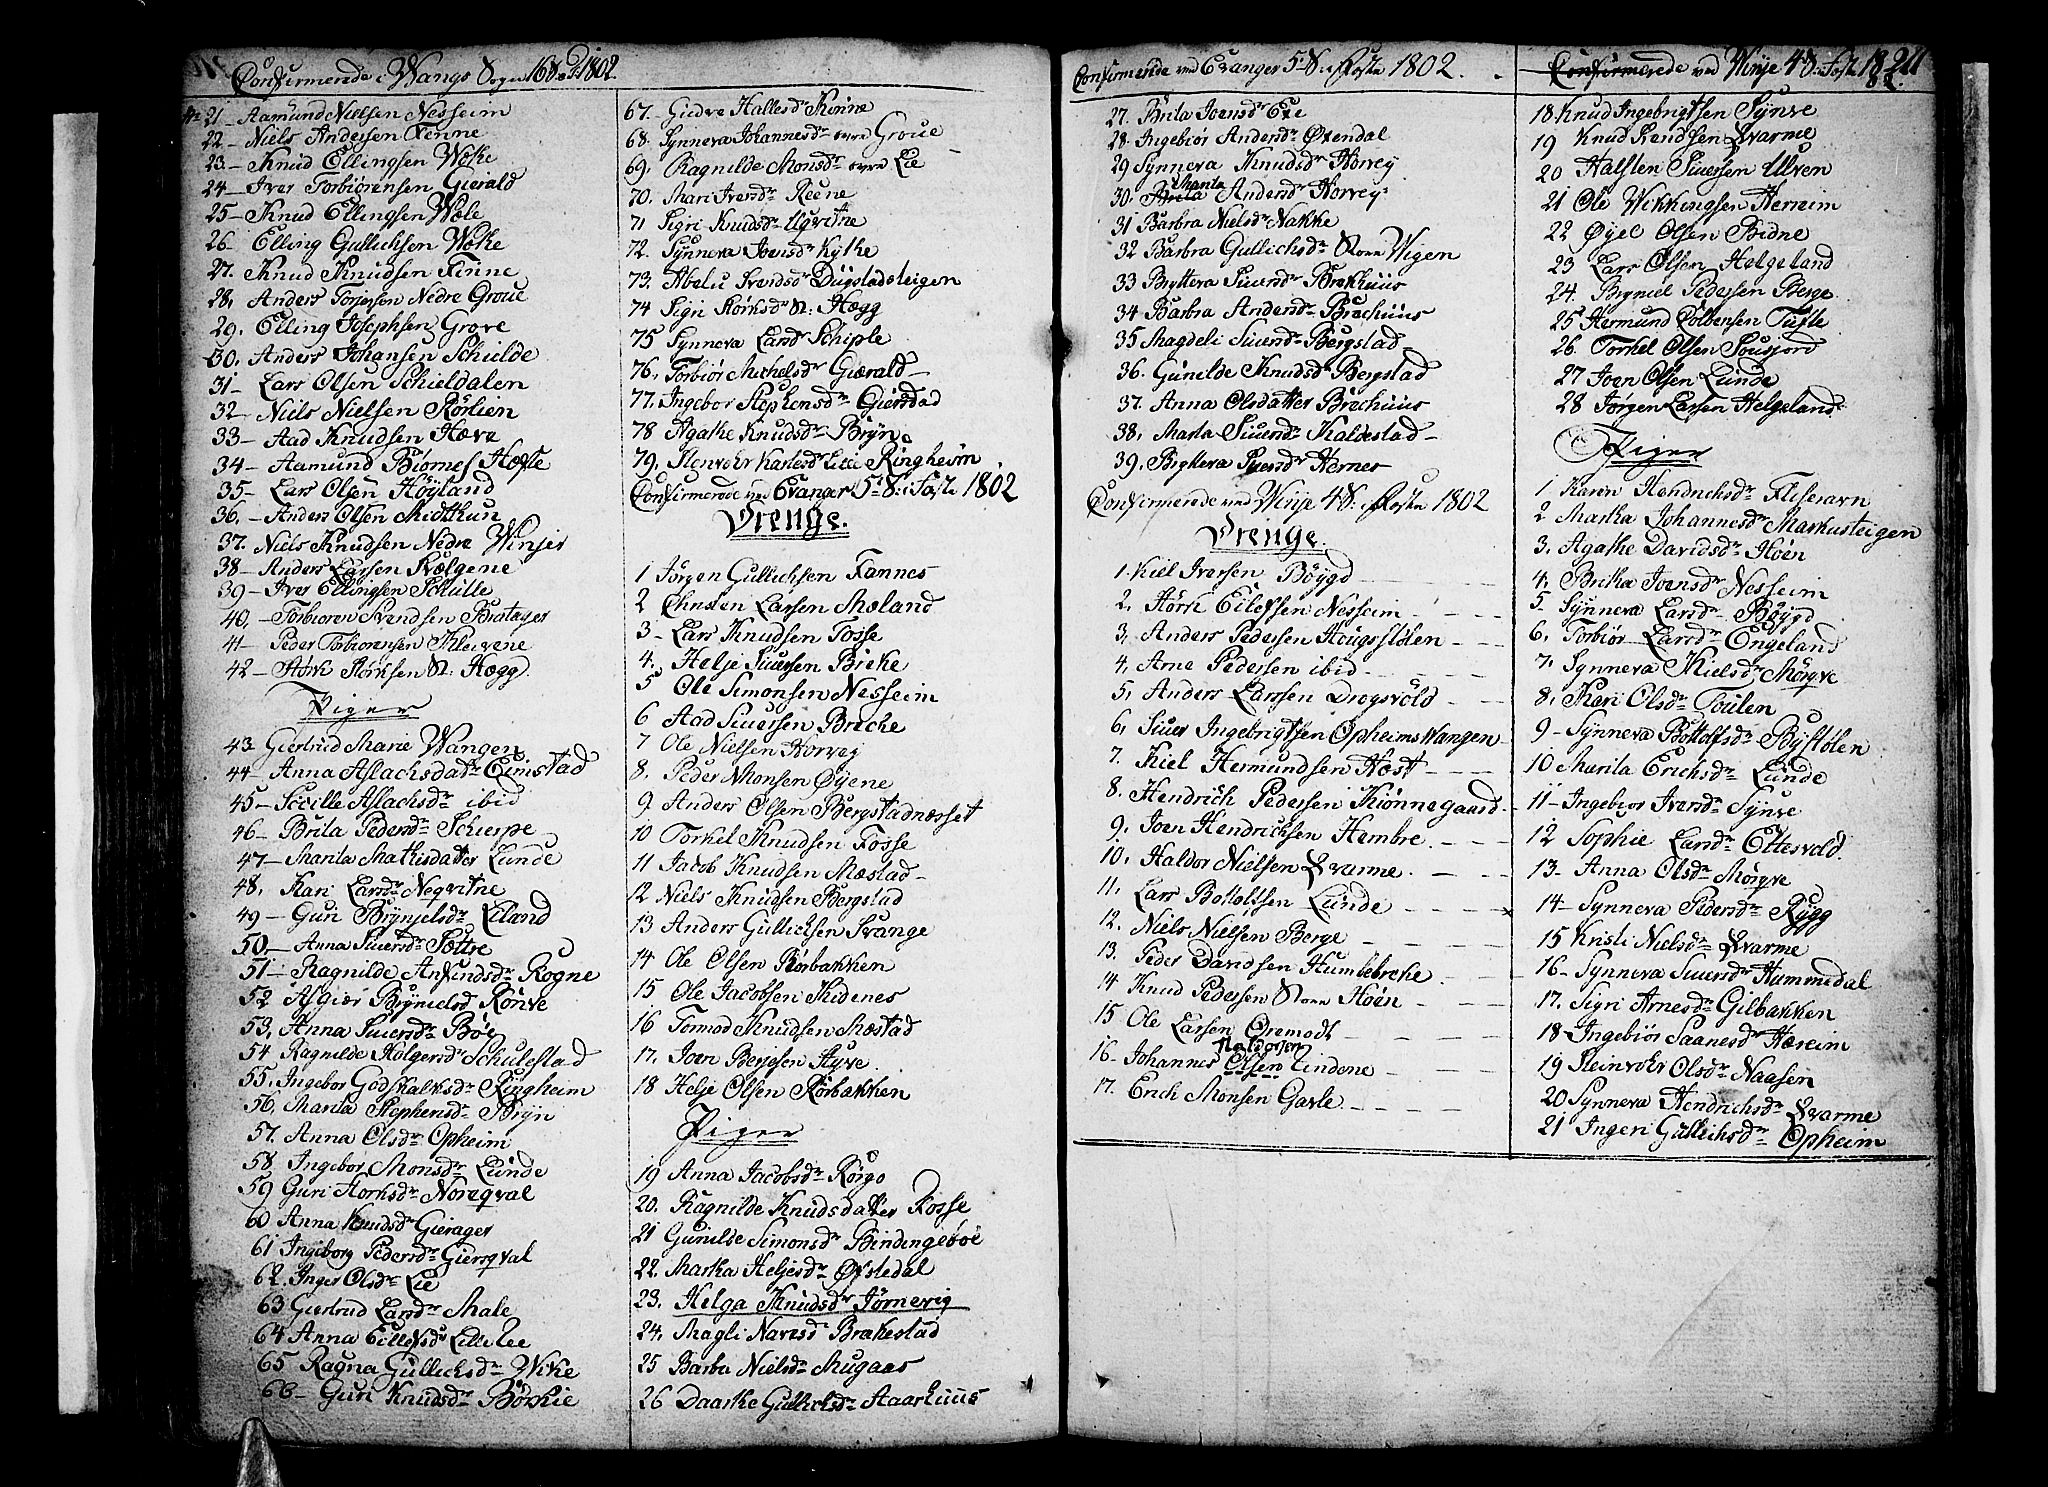 Confirmerede i Wangs Sogn 1802
No 21 - Aamund Nielsen Nesheim
22 - Niels Andersen Tenne
23 - Knud Ellingsen Wæke
24 - Iver Torbiörensen Gierald
25 - Knud Ellingsen Wæle
26 Elling Gullichsen Wæke
27. Knud Knudsen Finne
28. Anders Torjersen Nedre Groue
29. Elling Josephsen Grove
30. Anders Johansen Schielde
31 - Lars Olsen Schieldalen
32 - Niels Nielsen Rörlien
33 - Aad Knudsen Hæve
34 - Aamund Biörnes Hæfte
35 - Lars Olsen Höyland
36. - Anders Olsen Midthun
37. Niels Knudsen Nedre Winjer
38 - Anders Larsen Qvelgene
39 - Iver Ellingsen Schulle
40. - Torbioren Svendsen Bratager
41 - Peder Torbiorensen Klevene
42 - Störk Störksen St: Hægg
Piger
43 Giertrud Marie Wangen
44 - Anna Aslachsdatr Eimstad
45 - Sicille Aslachsdr ibid
46 - Brita Pedersdr Schierpe
47 - Marita Mathisdatter Lunde
48. Kari Larsdr Neqvitne
49 - Guri Brynielsdr Liland
50 - Anna Siversdr Sættre
51 - Ragnilde Anfindsdr Rogne
52 Asgier Brynielsd Rönve
53. Anna Siversdr Böe
54 Ragnilde Holgersdr Schulestad
55. Ingebor Godskalksdr Ringheim
56. Marita Stephensdr Bryn
57. Anna Olsdr Opheim
58 Ingebor Monsdr Lunde
59 Guri Storksdr Norqval
60 Anna Knudsdr Gierager
61 Ingeborg Pedersdr Gierqval
62. Inger Olsdr Lie
63 Giertrud Larsdr Male
64 Anna Eillefsdr Lille Lee
65 Ragna Gullichsdr Wike
66 - Guri Knudsdr Börkie
67. Gudve Hallesdr Finne
68. Synneva Johannesdr övre Groue
69. Ragnilde Monsdr övre Lie
70. Mari Iversdr Reene
71 Sigri Knudsdr Ugvitne
72. Synneva Joensdr Kyte
73. Abelu Svendsdr Dugstadsteigen
74 Sigri Störksdr St: Hægg
75 Synneva Larsdr Schiple
76. Torbiör Michelsdr Gierald
77. Ingebor Stephensdr Gierstad
78 Agathe Knudsdr Bryn
79. Stenvohr Karlesdr Litle Ringheim
Confirmerede ved Evanger 5 S: i Faste 1802
Drenge.
1 Jörgen Gullichsen Fannes
2 Christen Larsen Mæland
3 - Lars Knudsen Fosse
4. Helje Siversen Bieke
5 Ole Simonsen Nesheim
6 Aad Siversen Breche
7 Ole Nielsen Horvey
8. Peder Monsen Öyene
9 Anders Olsen Bergstadnæsset
10 Torkel Knudsen Fosse
11 Jacob Knudsen Mæstad
12 Niels Knudsen Bergstad
13 Anders Gullichsen Svange
14 Ole Olsen Rörbakken
15 Ole Jacobsen Kidenes
16 Tormod Knudsen Mæstad
17. Joen Berjesen Styve
18 Helje Olsen Rörbakken
Piger
19 Anna Jacobsdr Rörgo
20. Ragnilde Knudsdatter Fosse
21 Gunilde Simonsdr Bindingeböe
22. Martha Heljesdr Öxstedal
23. Helga Knudsdr Jörnevig
24. Magli Narvsdr Brakestad
25 Barbra Nielsdr Mugaas
26 Daarke Gullichsdr Aaarhuus
Confirmerede ved Evanger 5 S. i Faste 1802.
27. Brita Joensdr Exe
28. Ingebiör Andersdr Öxendal
29 Synneva Knudsdr Horvey
30. Brita Marita Andersdr Horvey
31 Barbra Nielsdr Nakke
32 Barbra Gullichsdr Store Wigen
33 Brytteva Siversdr Brekhuus
34 Barbra Andersdr Brechuus
35 Magdeli Siversdr Bergstad
36. Gunilde Knudsdr Bergstad
37. Anna Olsdatter Brechuus
38. Marta Siversdr Kaldestad
39. Brytteva Siversdr Hernes
Confirmerede ved Winje 4 S: i Faste 1802
Drenge.
1. Kiel Iversen Böygd
2. Störk Eilefsen Nesheim
3. Anders Pedersen Hougsstölen
4. Arne Pedersen ibid
5. Anders Larssen Dregsvold
6. Siver Ingebrigtsen Opheimsvangen
7. Kiel Hermundsen Hæst
8. Hendrich Pedersen Kiönnegaard
9. Joen Hendrichsen Hembre
10. Haldor Nielsen Qvarme
11. Lars Botoltsen Lunde
12. Niels Nielsen Berge
13. Peder Davidsen Humlebrekke
14 Knud Pedersen Store Höen
15 Ole Larsen Qremodt
16 - Johannes Olsen Haldorsen Tindene
17. Erich Monsen Gavle
Confirmerede ved Winje 4 S: Fast 1802
18. Knud Ingebrigtsen Tynve
19 Knud Svendsen Qvarme
20 Halsten Siversen Ulven
21 Ole Wikkingsen Herreim
22 Öyel Olsen Bidne
23 Lars Olsen Helgeland
24. Bryniel Pedersen Berge
25 Hermund Colbensen Tufte
26. Torkel Olsen Sousjord
27 Joen Olsen Lunde
28 Jörgen Larsen Helgeland
Piger
1 Karen Hendrichsdr Fliseram
2 Martha Johannesdr Markusteigen
3. Agathe Davidsdr Höen
4. Britha Joensdr Nesheim
5 Synneva Larsdr Böygd
6. Torbiör Larsdr Engeland
7. Synneva Kielsdr Mörqve
8. Kari Olsdr Toulen
9 - Synneva Bottolfsdr Bystölen
10 Marita Erichsdr Lunde
11 - Ingebior Iversdr Tynve
12 Sophie Larsdr Ettesvold
13 - Anna Olsdr Mörqve
14 - Synneva Pedersdr Rygg
15 Kristi Nielsdr Qvarme
16 - Synneva Siversdr Hammedal
17. Sigri Arnesdr Gilbakken
18 Ingebiör Saanesdr Hæreim
19 Steinvohr Olsdr Naasen
20 Synneva Hendrichsdr Qvarme
21 Ingeri Gullichsdr Opheim